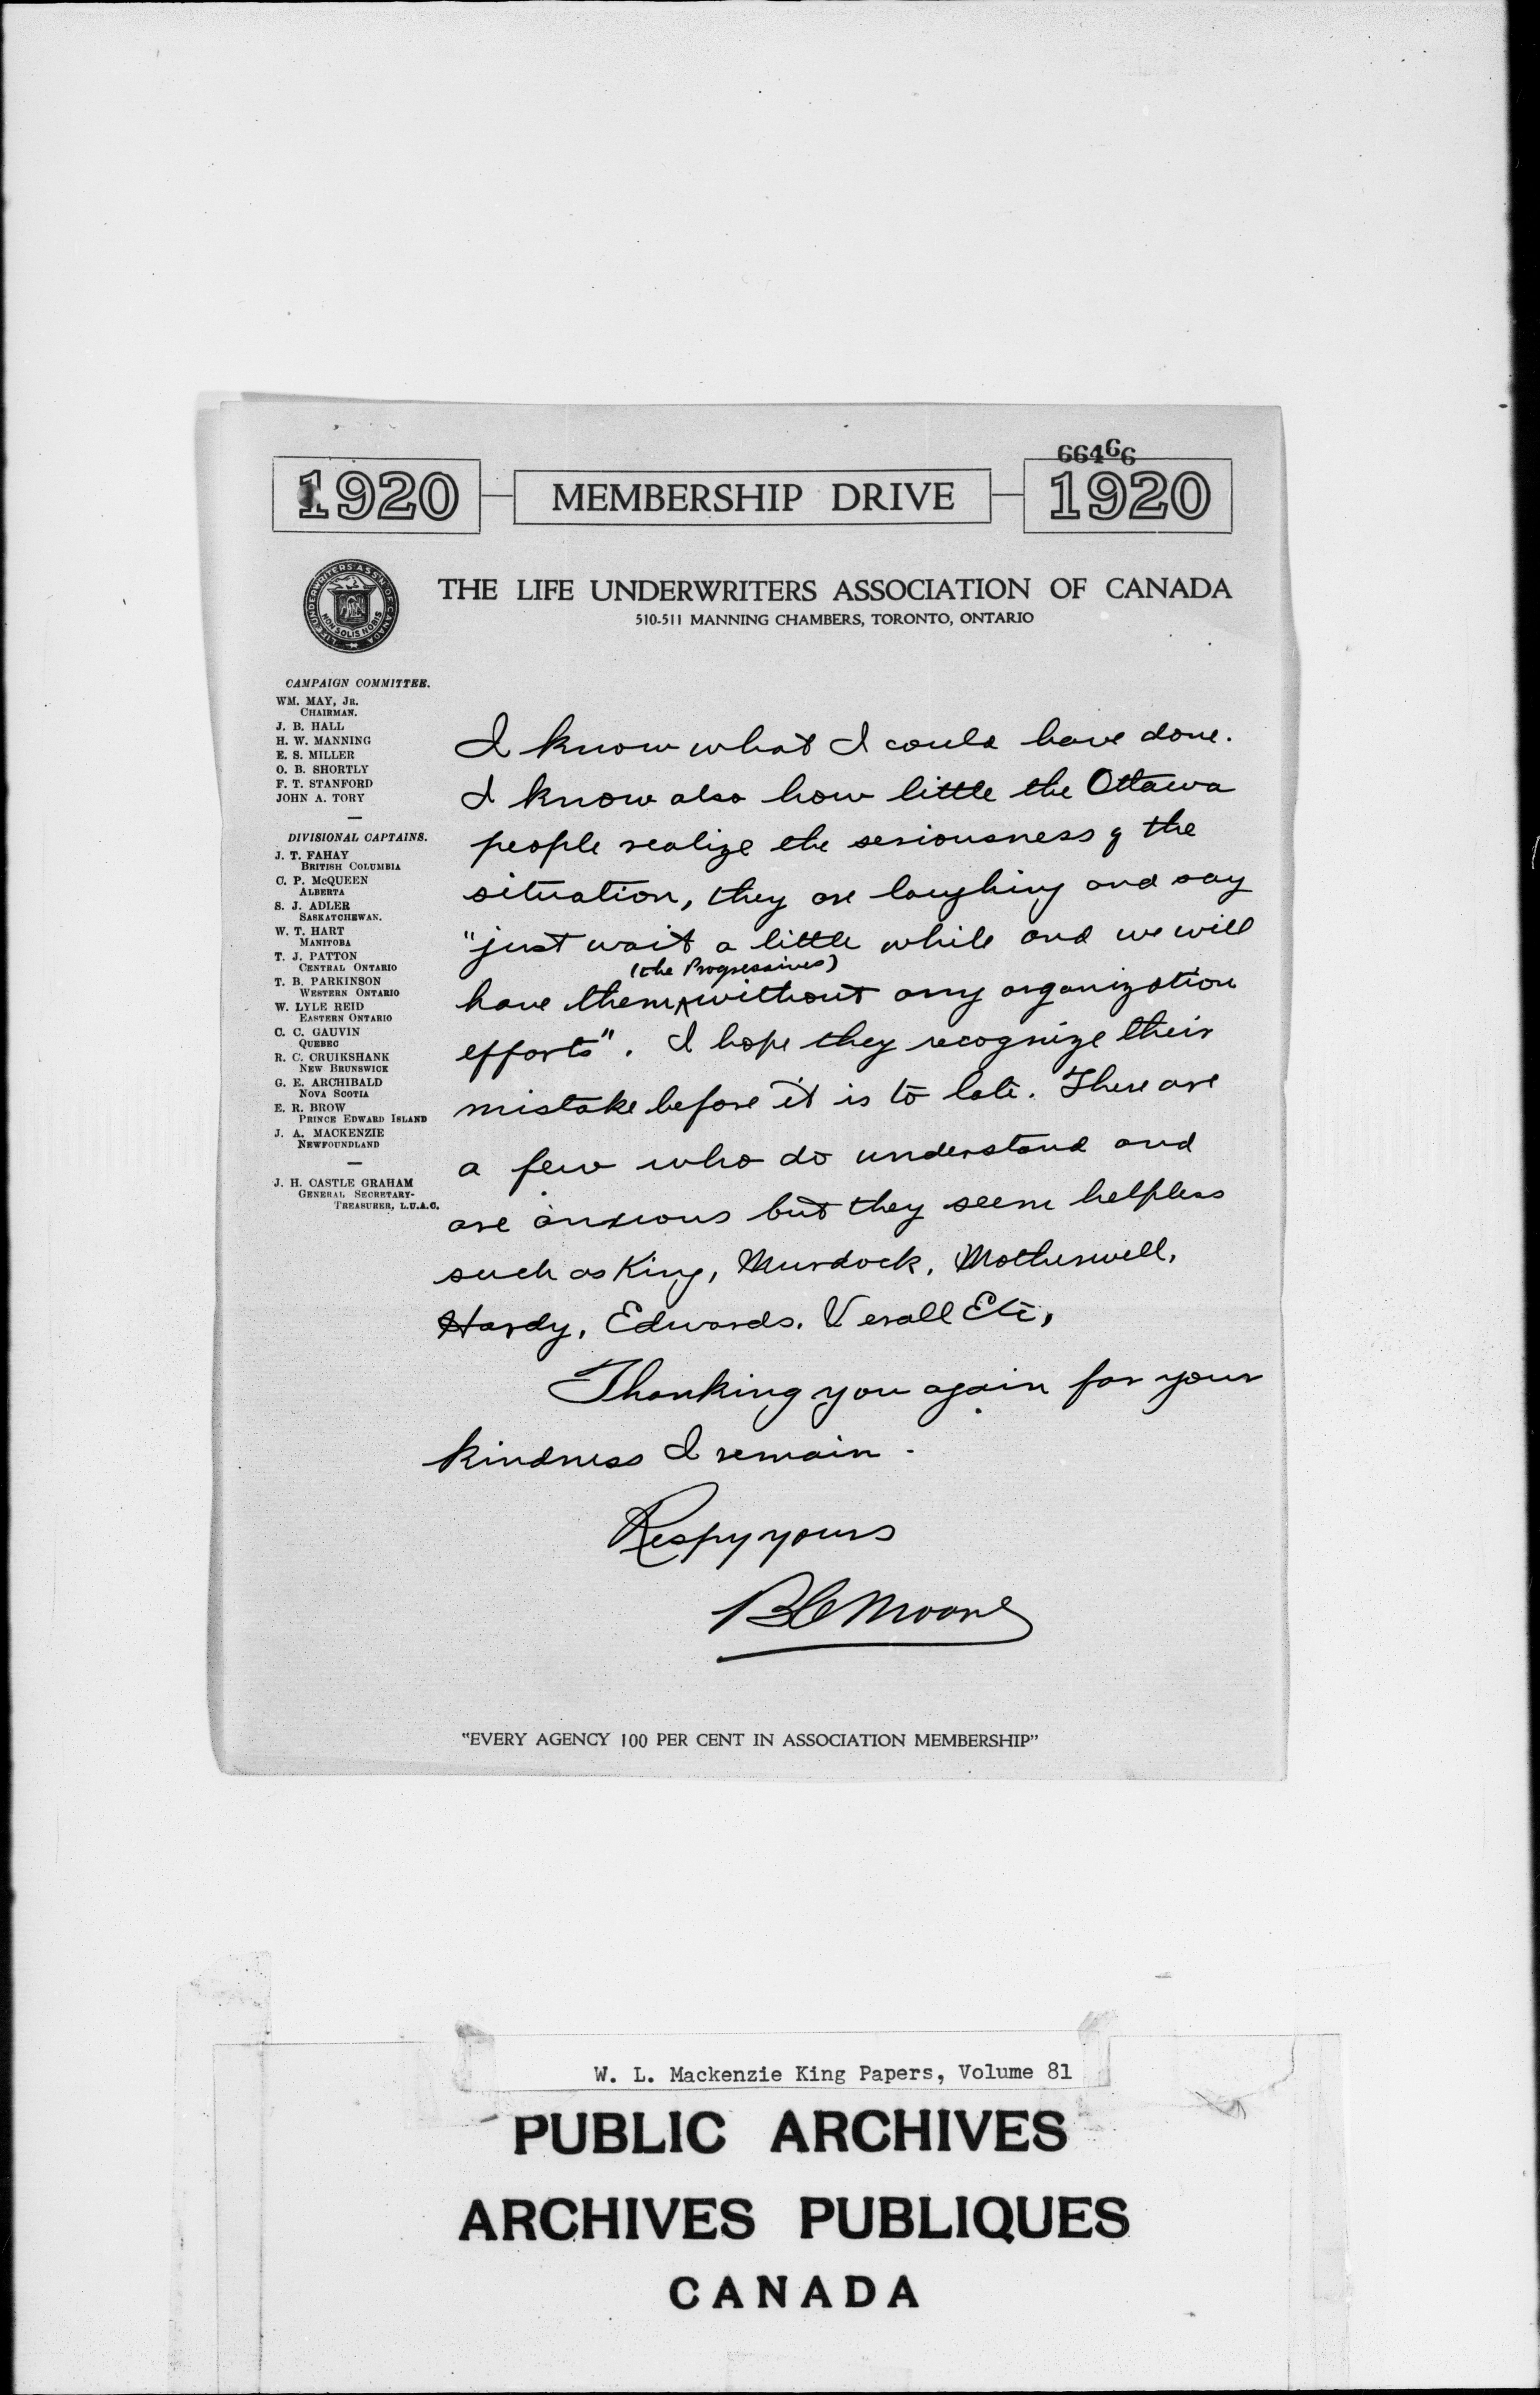 66466
1920 MEMBERSHIP DRIVE 1920
LIFE UNDERWRITERS ASS'N OF CANADA
NON SOLIS NOBIS
THE LIFE UNDERWRITERS ASSOCIATION OF CANADA
510-511 MANNING CHAMBERS, TORONTO, ONTARIO
CAMPAIGN COMMITTEE.
WM. MAY, JR.
CHAIRMAN.
J. B. HALL
H. W. MANNING
E. S. MILLER
O. B. SHORTLY
F. T. STANFORD
JOHN A. TORY
DIVISIONAL CAPTAINS.
J. T. FAHAY
BRITISH COLUMBIA
C. P. McQUEEN
ALBERTA
S. J. ADLER
SASKATCHEWAN.
W. T. HART
MANITOBA
T. J. PATTON
CENTRAL ONTARIO
T. B. PARKINSON
WESTERN ONTARIO
W. LYLE REID
EASTERN ONTARIO
C. C. GAUVIN
QUEBEC
R. C. CRUIKSHANK
NEW BRUNSWICK
G. E. ARCHIBALD
NOVA SCOTIA
E. R. BROW
PRINCE EDWARD ISLAND
J. A. MACKENZIE
NEWFOUNDLAND
J. H. CASTLE GRAHAM
GENERAL SECRETARY-
TREASURER, L.U.A.C.
I know what I could have done.
I know also how little the Ottawa
people realize the seriousness of the
situation, they are laughing and say
"just wait a little while and we will
(the Progressives)
have them without any organization
efforts". I hope they recognize their
mistake before it is to late. There are
a few who do understand and
are anxious but they seem helpless
such as King, Murdock, Motherwell,
Hardy, Edwards. Verall Etc,
Thanking you again for your
kindness I remain.
Respy yours
BC Moore
"EVERY AGENCY 100 PER CENT IN ASSOCIATION MEMBERSHIP"
W. L. Mackenzie King Papers, Volume 81
PUBLIC ARCHIVES
ARCHIVES PUBLIQUES
CANADA